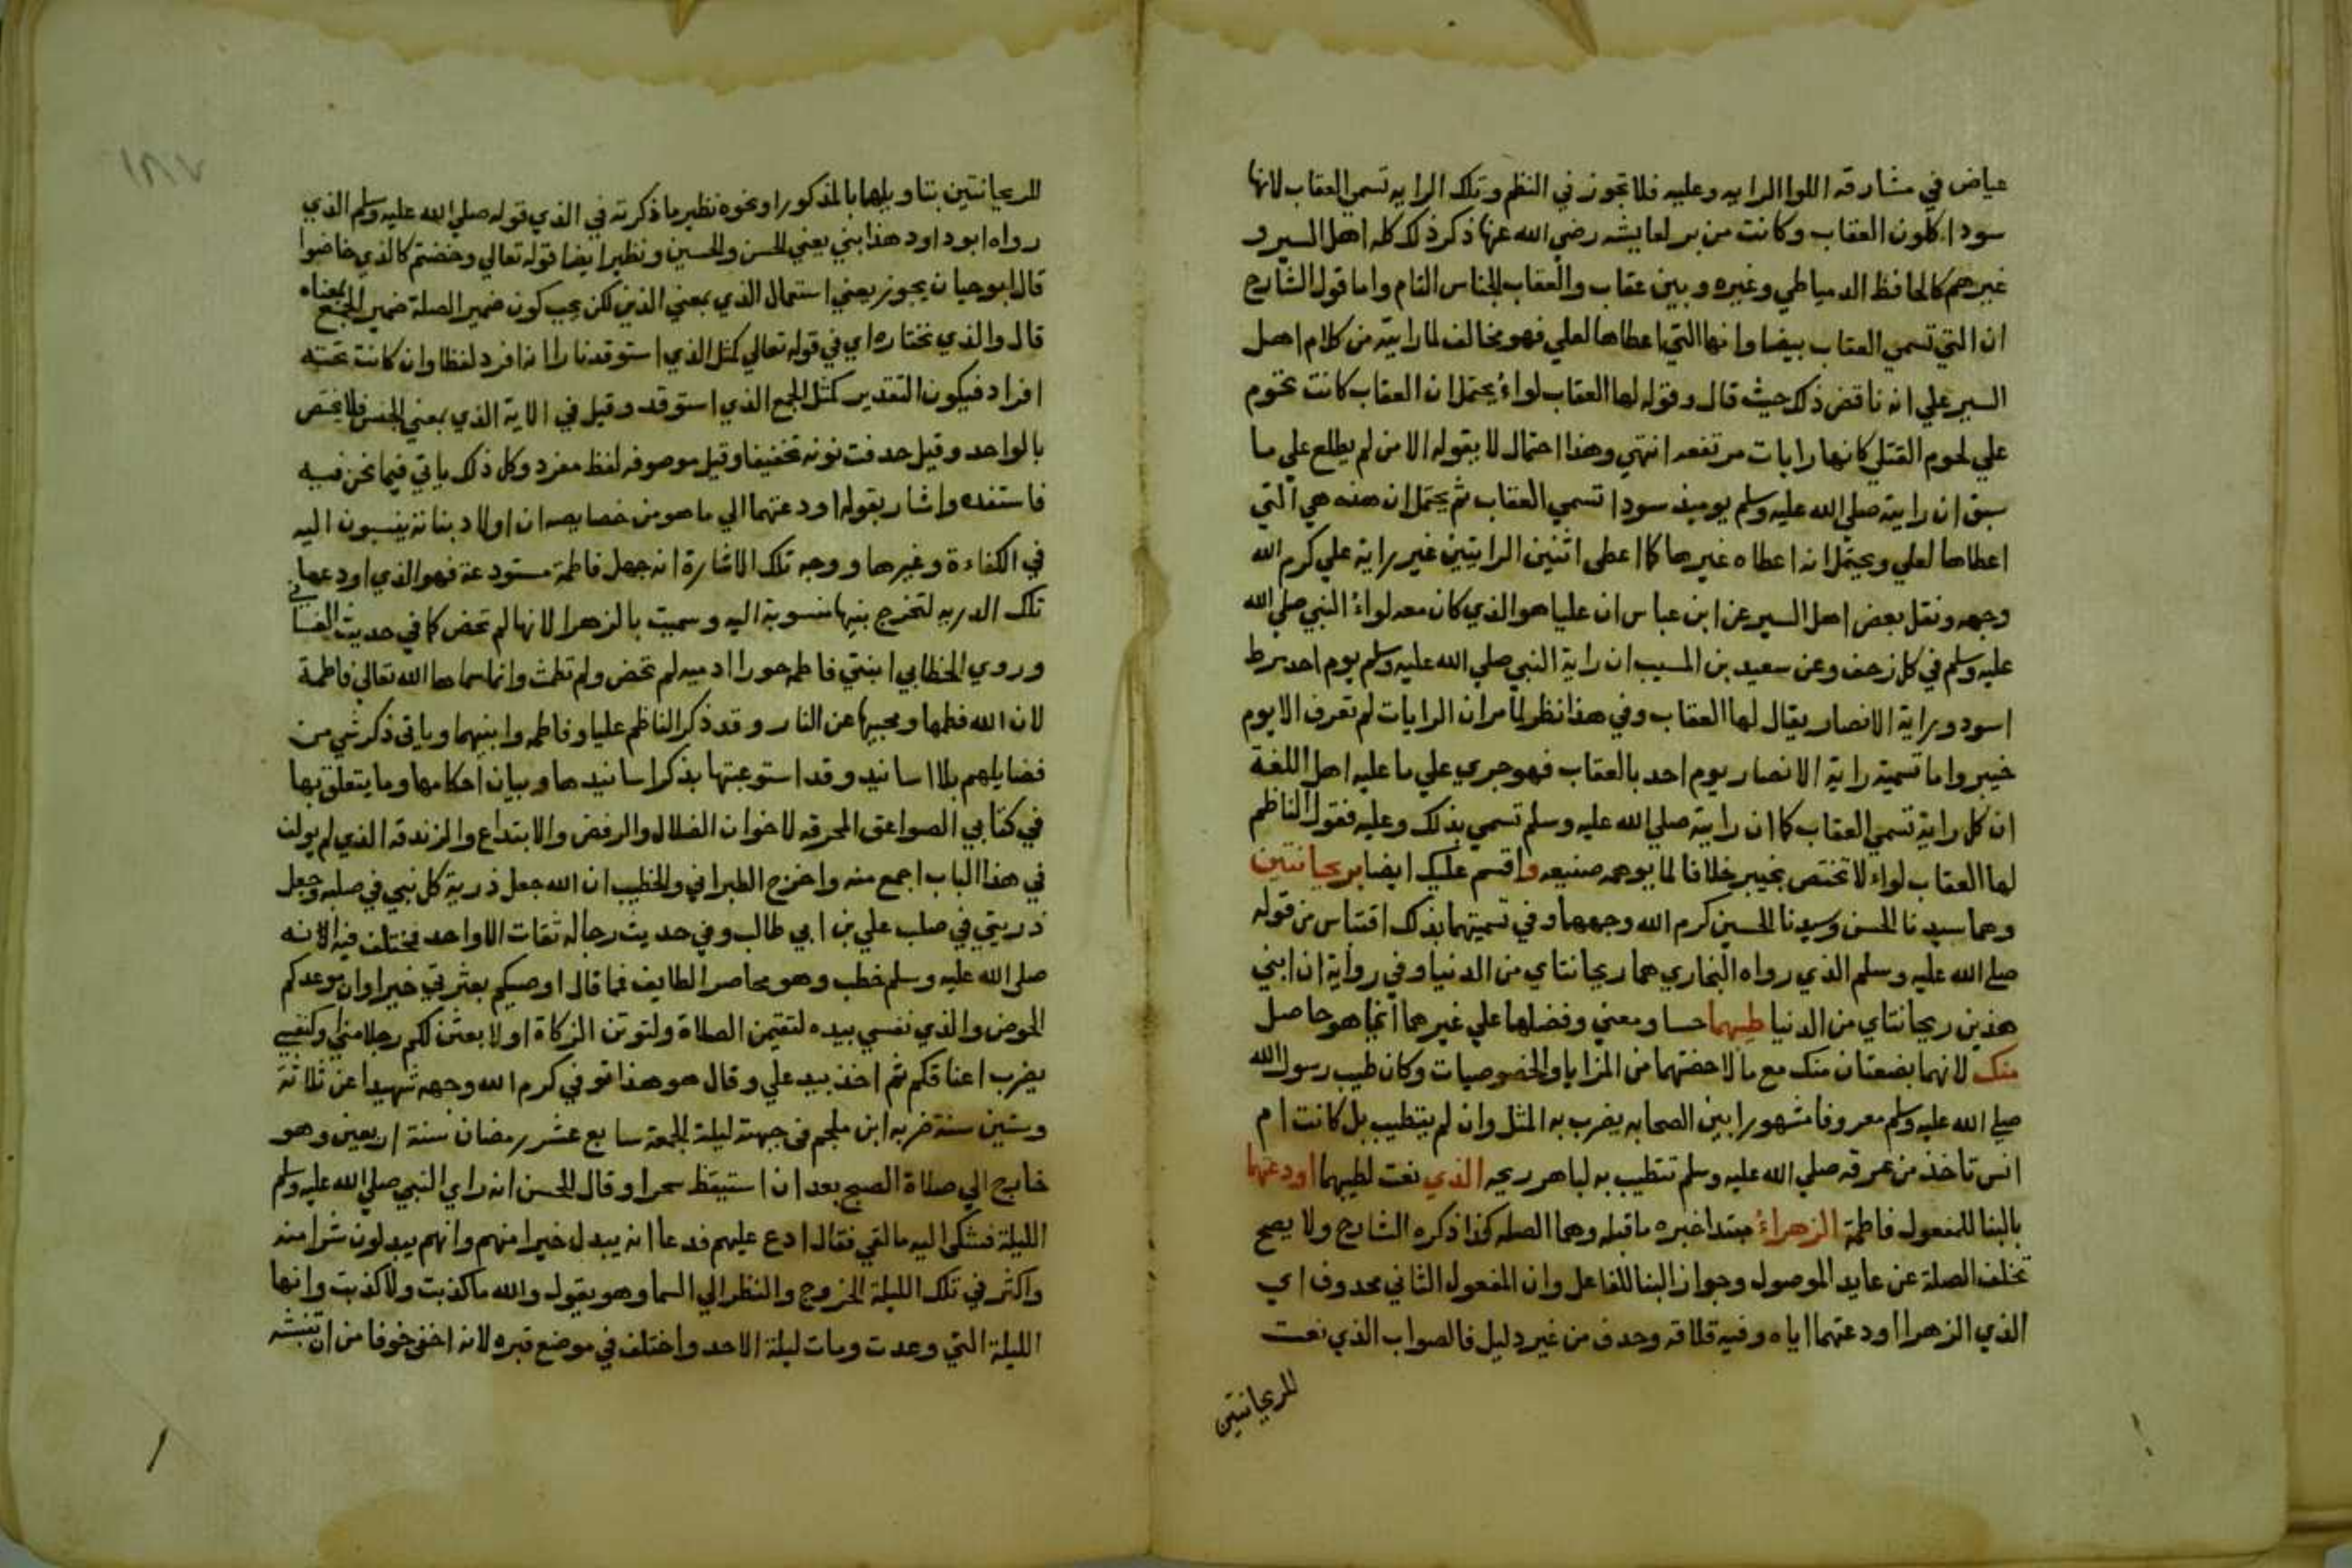 عياض في مشارقه اللوا الرايه وعليه فلا تجوز في النظم وتلك الرايه تسمي العقاب لانها
سودا كلون العقاب وكانت من برلعايشه رضي الله عنها ذكر ذلك كله اهل السير و
غيرهم كالحافظ الدمياطي وغيره وبين عقاب والعقاب الجناس التام واما قول الشارح
ان التي تسمي العقاب بيضا وانها التي اعطاها لعلي فهو مخالف لما رايته من كلام اهل
السير علي انه ناقض ذلك حيث قال وقوله لها العقاب لواء يحتمل ان العقاب كانت تحوم
علي لحوم القتلي كانها رايات مرتفعه انتهي وهذا احتمال لا يقوله الا من لم يطلع علي ما
سبق ان رايته صلي الله عليه وسلم يوميذ سودا تسمي العقاب ثم يحتمل ان هذه هي التي
اعطاها لعلي ويحتمل انه اعطاه غيرها كما اعطي اثنين الرايتين غير راية علي كرم الله
وجهه ونقل بعض اهل السير عن ابن عباس ان عليا هو الذي كان معه لواء النبي صلي الله
عليه وسلم في كل زحف وعن سعيد بن المسيب ان راية النبي صلي الله عليه وسلم يوم احد مرط
اسود وراية الانصار يقال لها العقاب وفي هذا نظر لما مر ان الرايات لم تعرف الا يوم
خيبر واما تسمية راية الانصار يوم احد بالعقاب فهو جري علي ما عليه اهل اللغة
ان كل راية تسمي العقاب كما ان رايته صلي الله عليه وسلم تسمي بذلك وعليه فقول الناظم
لها العقاب لواء لا تختص بخيبر خلافا لما يوهمه صنيعه واقسم عليك ايضا بريحانتين
وهما سيدنا الحسن وسيدنا الحسين كرم الله وجههما وفي تسميتهما بذلك اقتباس من قوله
صلي الله عليه وسلم الذي رواه البخاري هما ريحانتاي من الدنيا وفي رواية ان ابني
هذين ريحانتاي من الدنيا طيبهما حسا ومعني وفضلها علي غيرهما انما هو حاصل
منك لانهما بضعتان منك مع ما لاحضتهما من المزايا والخصوصيات وكان طيب رسول الله
صلي الله عليه وسلم معروفا مشهورا بين الصحابه يضرب به المثل وان لم يتطيب بل كانت ام
انس تاخذ من عرقه صلي الله عليه وسلم تتطيب به لباهر ريحه الذي نعت لطيبهما اودعتهما
بالبنا للمفعول فاطمة الزهراء مبتدا خبره ما قبله وهما الصله كذا ذكره الشارح ولا يصح
تخلف الصلة عن عايد الموصول وجواز البنا للفاعل وان المفعول الثاني محدوف اي
الذي الزهرا اودعتهما اياه وفيه قلاقه وحدف من غير دليل فالصواب الذي نعت
للريحانتين
١٨٧
للريحانتين بتاويلها بالمذكور او نحوه نظير ما ذكرته في الذي قوله صلي الله عليه وسلم الذي
رواه ابو داود هذا بني يعني الحسن والحسين ونظير ايضا قوله تعالي وخضتم كالذي خاضوا
قال ابو حيان يجوز يعني استعمال الذي بمعني الذين لكن يجب كون ضمير الصلة ضمير الجمع بمعناه
قال والذي نختاره اي في قوله تعالي كمثل الذي استوقد نارا انه افرد لفظا وان كانت تحته
افراد فيكون التقدير كمثل الجمع الذي استوقد وقيل في الاية الذي بمعني الجنس فلا يختص
بالواحد وقيل حدفت نونه تخفيفا وقيل موصوفه لفظ مفرد وكل ذلك ياتي فيما نحن فيه
فاستفده واشار بقوله اودعتهما الي ما هو من خصايصه ان اولاد بناته ينسبون اليه
في الكفاءة وغيرها ووجه تلك الاشارة انه جعل فاطمة مستودعة فهو الذي اودعها
تلك الدريه لتخرج بنيها منسوبة اليه وسميت بالزهرا لانها لم تحض كما في حديث النساي
وروي الخطابي ابنتي فاطمه حورا ادميه لم تحض ولم تطمث وانما سماها الله تعالي فاطمة
لان الله فطمها ومحبيها عن النار وقد ذكر الناظم عليا وفاطمه وابنيهما وياتي ذكر شي من
فضايلهم بلا اسانيد وقد استوعبتها بذكر اسانيدها وبيان احكامها وما يتعلق بها
في كتابي الصواعق المحرقه لاخوان الضلال والرفض والابتداع والزندقه الذي لم يولف
في هذا الباب اجمع منه واخرج الطبراني والخطيب ان الله جعل ذرية كل نبي في صلبه وجعل
ذريتي في صلب علي بن ابي طالب وفي حديث رجاله ثقات الا واحد مختلف فيه انه
صلي الله عليه وسلم خطب وهو محاصر الطايف فما قال اوصيكم بعترتي خيرا وان موعدكم
الحوض والذي نفسي بيده لتقيمن الصلاة ولتوتن الزكاة او لابعثن لكم رجلا مني او كنفسي
يضرب اعناقكم ثم اخذ بيد علي وقال هو هذا توفي كرم الله وجهه شهيدا عن ثلاثة
وستين سنة ضربه ابن ملجم في جبهته ليلة الجمعة سابع عشر رمضان سنة اربعين وهو
خارج الي صلاة الصبح بعد ان استيقظ سحرا وقال للحسن انه راي النبي صلي الله عليه وسلم
الليلة فشكي اليه ما لقي فقال ادع عليهم فدعا انه يبدل خيرا منهم وانهم يبدلون شرا منه
واكثر في تلك الليلة الخروج والنظر الي السما وهو يقول والله ما كذبت ولا كذبت وانها
الليلة التي وعدت ومات ليلة الاحد واختلف في موضع قبره لانه اخفي خوفا من ان تنبشه